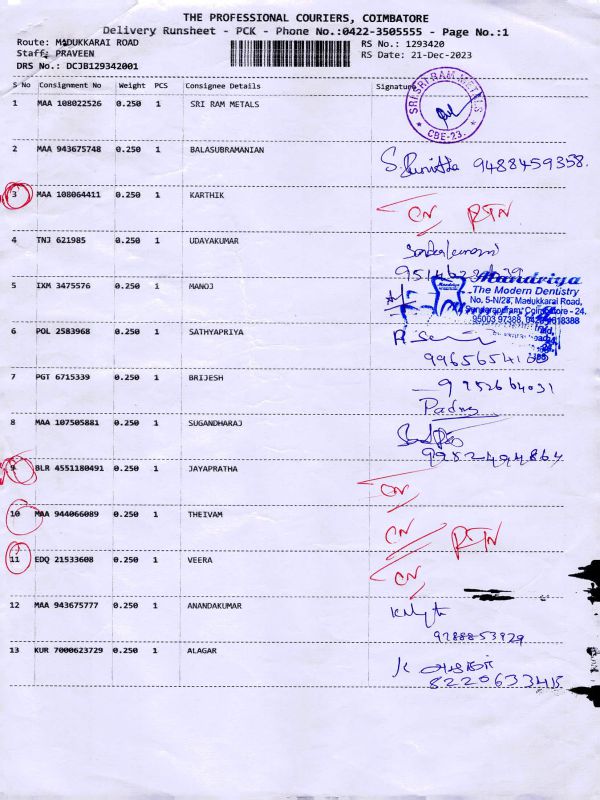 THE PROFESSIONAL COURIERS, COIMBATORE
Delivery Runsheet - PCK - Phone No.:0422-3505555 - Page No.:1
Route: MADUKKARAI ROAD RS No.: 1293420
Staff: PRAVEEN RS Date: 21-Dec-2023
DRS No.: DCJB129342001
S No Consignment No Weight PCS Consignee Details Signature
1 MAA 108022526 0.250 1 SRI RAM METALS
SRI SRI RAM METALS
* CBE-23. *
2 MAA 943675748 0.250 1 BALASUBRAMANIAN
S. Punitha 9488459358.
3 MAA 108064411 0.250 1 KARTHIK
CN RTN
4 TNJ 621985 0.250 1 UDAYAKUMAR
5 IXM 3475576 0.250 1 MANOJ
Mandriya
The Modern Dentistry
No. 5-N/28, Madukkarai Road,
Sundarapuram, Coimbatore - 24.
6 POL 2583968 0.250 1 SATHYAPRIYA
7 PGT 6715339 0.250 1 BRIJESH
9952664031
Padma
8 MAA 107505881 0.250 1 SUGANDHARAJ
9 BLR 4551180491 0.250 1 JAYAPRATHA
CN
10 MAA 944066089 0.250 1 THEIVAM
CN RTN
11 EDQ 21533608 0.250 1 VEERA
CN
12 MAA 943675777 0.250 1 ANANDAKUMAR
9788853929
13 KUR 7000623729 0.250 1 ALAGAR
8220633415